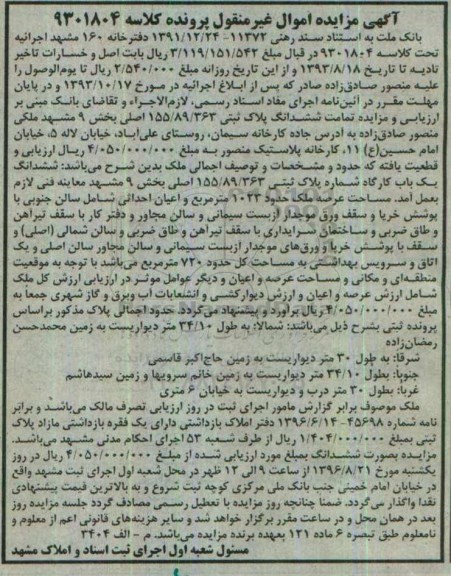 آگهی مزایده اموال غیرمنقول پرونده کلاسه ۹۳۰۱۸۰۴
بانک ملت به استناد سند رهنی ۱۱۳۷۲- ۱۳۹۱/۱۲/۲۴ دفترخانه ۱۶۰ مشهد اجرائیه
تحت کلاسه ۹۳۰۱۸۰۴ در قبال مبلغ ۳/۱۱۹/۱۵۱/۵۴۲ ریال بابت اصل و خسارات تاخیر
تادیه تا تاریخ ۱۳۹۳/۸/۱۸ و از این تاریخ روزانه مبلغ ۲/۵۴۰/۰۰۰ ریال تا یوم‌الوصول را
علیه منصور صادق‌زاده صادر که پس از ابلاغ اجرائیه در مورخ ۱۳۹۳/۱۰/۱۷ و در پایان
مهلت مقرر در آئین‌نامه اجرای مفاد اسناد رسمی، لازم‌الاجراء و تقاضای بانک مبنی بر
ارزیابی و مزایده تمامت ششدانگ پلاک ثبتی ۱۵۵/۸۹/۳۶۳ اصلی بخش ۹ مشهد ملکی
منصور صادق‌زاده به آدرس جاده کارخانه سیمان، روستای علی‌آباد، خیابان لاله ۵، خیابان
امام حسین(ع) ۱۱، کارخانه پلاستیک منصور به مبلغ ۴/۰۵۰/۰۰۰/۰۰۰ ریال ارزیابی و
قطعیت یافته که حدود و مشخصات و توصیف اجمالی ملک بدین شرح می‌باشد: ششدانگ
یک باب کارگاه شماره پلاک ثبتی ۱۵۵/۸۹/۳۶۳ اصلی بخش ۹ مشهد معاینه فنی لازم
بعمل آمد. مساحت عرصه ملک حدود ۱۰۲۳ مترمربع و اعیان احداثی شامل سالن جنوبی با
پوشش خرپا و سقف ورق موجدار ازبست سیمانی و سالن مجاور و دفتر کار با سقف تیرآهن
و طاق ضربی و ساختمان سرایداری با سقف تیرآهن و طاق ضربی و سالن شمالی (اصلی) و
سقف با پوشش خرپا و ورق‌های موجدار ازبست سیمانی و سالن مجاور سالن اصلی و یک
اتاق و سرویس بهداشتی به مساحت کل حدود ۷۲۰ مترمربع می‌باشد با توجه به موقعیت
منطقه‌ای و مکانی و مساحت عرصه و اعیان و دیگر عوامل موثر در ارزیابی ارزش کل ملک
شامل ارزش عرصه و اعیان و ارزش دیوارکشی و انشعابات آب وبرق و گاز شهری جمعا به
مبلغ ۴/۰۵۰/۰۰۰/۰۰۰ ریال برآورد و پیشنهاد می‌گردد. حدود اجمالی پلاک مذکور براساس
پرونده ثبتی بشرح ذیل می‌باشد: شمالا: به طول ۳۴/۱۰ متر دیواریست به زمین محمدحسن
رمضان‌زاده
شرقا: به طول ۳۰ متر دیواریست به زمین حاج‌اکبر قاسمی
جنوبا: بطول ۳۴/۱۰ متر دیواریست به زمین خانم سرویها و زمین سیدهاشم
غربا: بطول ۳۰ متر درب و دیواریست به خیابان ۶ متری
ملک موصوف برابر گزارش مامور اجرای ثبت در روز ارزیابی تصرف مالک می‌باشد و برابر
نامه شماره ۴۵۶۹۸- ۱۳۹۶/۶/۱۴ دفتر املاک بازداشتی دارای یک فقره بازداشتی مازاد پلاک
ثبتی بمبلغ ۱/۴۰۴/۰۰۰/۰۰۰ ریال از طرف شعبه ۵۳ اجرای احکام مدنی مشهد می‌باشد.
مزایده بصورت ششدانگ بمبلغ مورد ارزیابی شده از مبلغ ۴/۰۵۰/۰۰۰/۰۰۰ ریال در روز
یکشنبه مورخ ۱۳۹۶/۸/۲۱ از ساعت ۹ الی ۱۲ ظهر در محل شعبه اول اجرای ثبت مشهد واقع
در خیابان امام خمینی جنب بانک ملی مرکزی کوچه ثبت شروع و به بالاترین قیمت پیشنهادی
نقدا واگذار می‌گردد. ضمنا چنانچه روز مزایده با تعطیل رسمی مصادف گردد جلسه مزایده روز
بعد در همان محل و در ساعت مقرر برگزار خواهد شد و سایر هزینه‌های قانونی اعم از معلوم و
نامعلوم طبق تبصره ۶ ماده ۱۲۱ بعهده برنده مزایده می‌باشد. م - الف ۳۴۰۴
مسئول شعبه اول اجرای ثبت اسناد و املاک مشهد